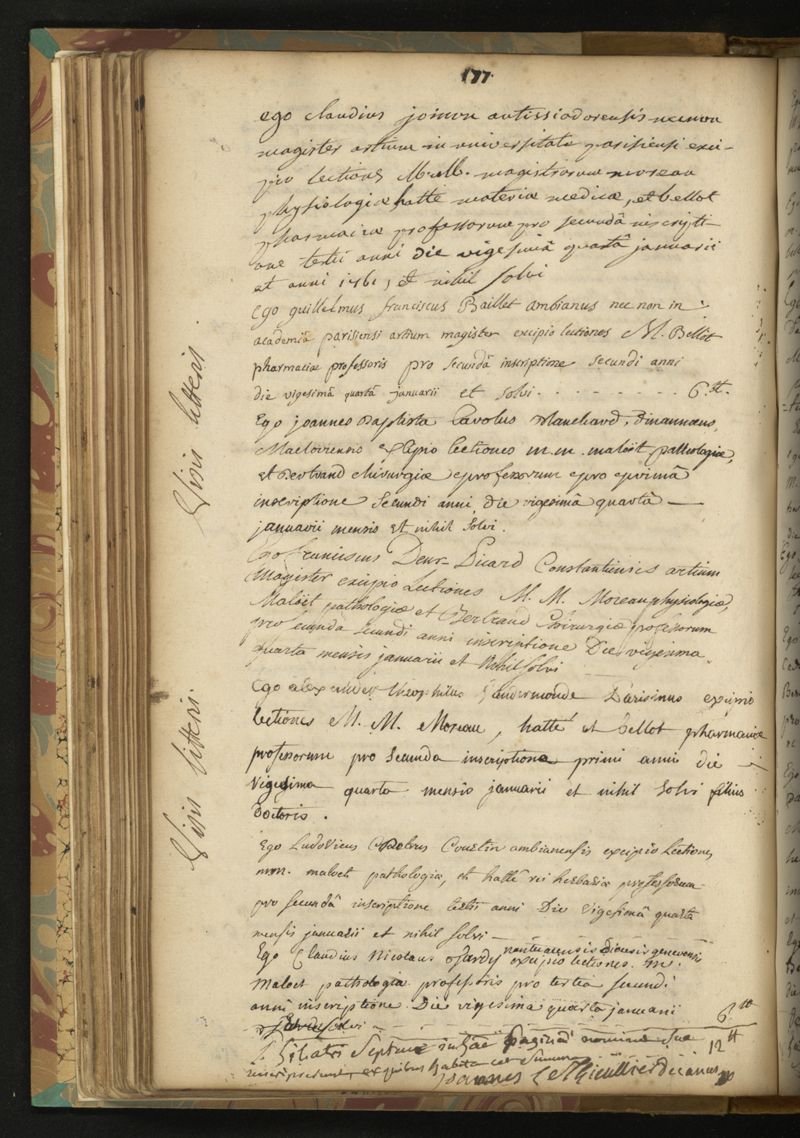 177.
ego claudius joinon autissiodorensis necnon
magister artium in universitate parisiensi exci-
pio lectiones M.M. magistrorum moreau
physiologiæ hatté materiæ medicæ, et bellot
pharmaciæ professorum pro secundâ inscripti-
one tertii anni die vigesimâ quartâ januarii
et anni 1761, et nihil solvi
Ego guillelmus franciscus Baillet ambianus nec non in
academiâ parisiensi artium magister excipio lectiones M. Bellot
pharmaciæ professoris pro secundâ inscriptione secundi anni
die vigesimâ quartâ januarii et solvi . - - - - - - - - 6.tt.
Ego joannes Baptista Carolus Blanchard, dinannæus,
Macloviensis excipio lectiones m.m. maloët pathologiæ,
et Bertrand chirurgiæ professorum pro primâ
inscriptione secundi anni, die vigesimâ quartâ —
januarii mensis et nihil solvi.
Visis litteris.
Ego franciscus Picard Constantiensis artium
Magister excipio Lectiones M. M. Moreau physiologiæ,
Maloët pathologiæ et Bertrand chirurgiæ professorum
pro secunda secundi anni inscriptione Die vigesima
quarta mensis januarii et nihil solvi
Ego alexander Theophilus Vandermonde Parisinus excipio
Lectiones M. M. Moreau, hatté et Bellot pharmaciæ
professorum pro secunda inscriptione primi anni die
vigesima quarta mensis januarii et nihil solvi filius
Doctoris.
Visis litteris.
Ego Ludovicus Coustin ambianensis excipio Lectiones
mm. maloet pathologiæ, et hatté rei herbariæ professorum
pro secundâ inscriptione tertii anni Die vigesimâ quartâ
mensis januarii et nihil solvi —
Ego Claudius Nicolaus Jardy nantuacensis Diocesis genevensis excipio lectiones m.
Maloet pathologiæ professoris pro tertia secundi
anni inscriptione. Die vigesima quarta januarii
et solvi - - - 6tt
Septem in hac paginâ nomina sua 12tt
inscripserunt, ex quibus habita est summa
Joannes Le Thieullier decanus